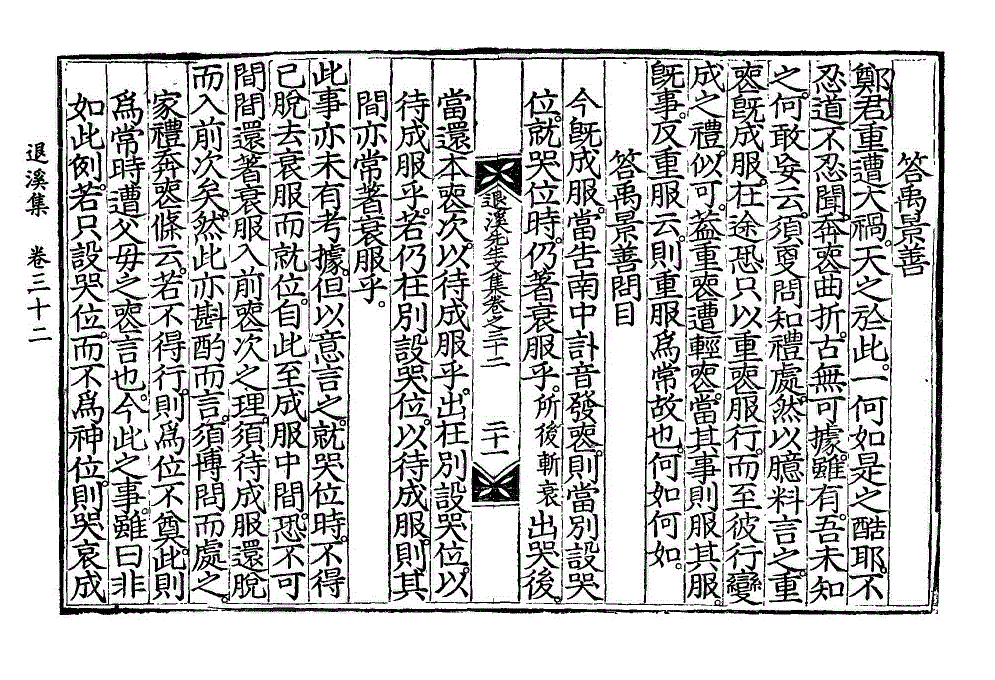 答禹景善
鄭君重遭大禍。天之於此。一何如是之酷耶。不
忍道不忍聞。奔喪曲折。古無可據。雖有。吾未知
之。何敢妄云。須更問知禮處。然以臆料言之。重
喪旣成服。在途恐只以重喪服行。而至彼行變
成之禮似可。蓋重喪遭輕喪。當其事則服其服。
旣事。反重服云。則重服爲常故也。何如何如。
答禹景善問目
今旣成服。當告南中訃音發喪。則當別設哭
位。就哭位時。仍著衰服乎。所後斬衰出哭後。
退溪先生文集卷之三十二 二十一
當還本喪次。以待成服乎。出在別設哭位。以
待成服乎。若仍在別設哭位。以待成服。則其
間亦常著衰服乎。
此事亦未有考據。但以意言之。就哭位時。不得
已脫去衰服而就位。自此至成服中間。恐不可
間間還著衰服入前喪次之理。須待成服還脫
而入前次矣。然此亦斟酌而言。須博問而處之。
家禮奔喪條云。若不得行。則爲位不奠。此則
爲常時遭父母之喪言也。今此之事。雖曰非
如此例。若只設哭位。而不爲神位。則哭哀成
退溪集 卷三十二